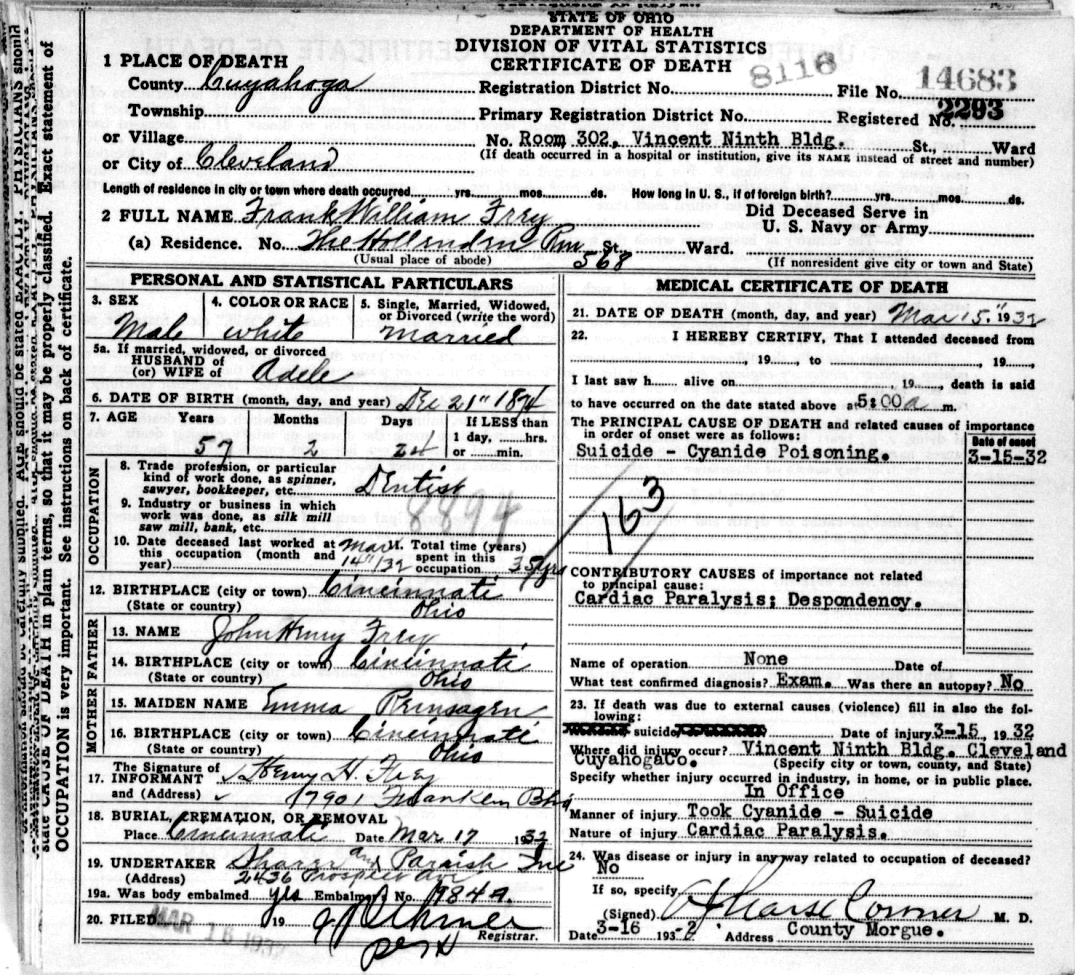 STATE OF OHIO
DEPARTMENT OF HEALTH
DIVISION OF VITAL STATISTICS
CERTIFICATE OF DEATH
8116
14683
1 PLACE OF DEATH
County Cuyahoga
Registration District No. File No.
Township
Primary Registration District No. Registered No. 2293
or Village
No. Room 302, Vincent Ninth Bldg. St., Ward
or City of Cleveland
(If death occurred in a hospital or institution, give its NAME instead of street and number)
Length of residence in city or town where death occurred yrs. mos. ds. How long in U. S., if of foreign birth? yrs. mos. ds.
2 FULL NAME Frank William Frey
Did Deceased Serve in
U. S. Navy or Army
(a) Residence. No. The Hollenden Rm 568 St. Ward.
(Usual place of abode) (If nonresident give city or town and State)
PERSONAL AND STATISTICAL PARTICULARS
3. SEX
Male
4. COLOR OR RACE
white
5. Single, Married, Widowed,
or Divorced (write the word)
Married
5a. If married, widowed, or divorced
HUSBAND of
(or) WIFE of Adele
6. DATE OF BIRTH (month, day, and year) Dec 21" 1874
7. AGE Years Months Days If LESS than
57 2 24 1 day, hrs.
or min.
OCCUPATION
8. Trade profession, or particular
kind of work done, as spinner,
sawyer, bookkeeper, etc. Dentist
9. Industry or business in which
work was done, as silk mill
saw mill, bank, etc.
8894
10. Date deceased last worked at
this occupation (month and
year) Mar 14"/32
11. Total time (years)
spent in this
occupation 35 yrs
12. BIRTHPLACE (city or town) Cincinnati
(State or country) Ohio
FATHER
13. NAME John Henry Frey
14. BIRTHPLACE (city or town) Cincinnati
(State or country) Ohio
MOTHER
15. MAIDEN NAME Emma
16. BIRTHPLACE (city or town) Cincinnati
(State or country) Ohio
17. The Signature of
INFORMANT Henry H. Frey
and (Address) 17901 Franklin Blvd
18. BURIAL, CREMATION, OR REMOVAL
Place Cincinnati Date Mar 17 1932
19. UNDERTAKER and Parrish Inc
(Address) 2436 Prospect Ave
19a. Was body embalmed yes Embalmer's No. 984A.
20. FILED MAR 16 1932 19
Registrar.
MEDICAL CERTIFICATE OF DEATH
21. DATE OF DEATH (month, day, and year) Mar 15" 1932
22. I HEREBY CERTIFY, That I attended deceased from
, 19 , to , 19
I last saw h alive on , 19 , death is said
to have occurred on the date stated above at 5:00 a m.
The PRINCIPAL CAUSE OF DEATH and related causes of importance
in order of onset were as follows: Date of onset
Suicide - Cyanide Poisoning. 3-15-32
163
CONTRIBUTORY CAUSES of importance not related
to principal cause:
Cardiac Paralysis; Despondency.
Name of operation None Date of
What test confirmed diagnosis? Exam. Was there an autopsy? No
23. If death was due to external causes (violence) fill in also the following:
suicide Date of injury 3-15, 1932
Where did injury occur? Vincent Ninth Bldg. Cleveland
Cuyahoga Co. (Specify city or town, county, and State)
Specify whether injury occurred in industry, in home, or in public place.
In Office
Manner of injury Took Cyanide - Suicide
Nature of injury Cardiac Paralysis.
24. Was disease or injury in any way related to occupation of deceased?
No
If so, specify
(Signed) A J Pearse Coroner M. D.
Date 3-16 1932 Address County Morgue.
state CAUSE OF DEATH in plain terms, so that it may be properly classified. Exact statement of
OCCUPATION is very important. See instructions on back of certificate.